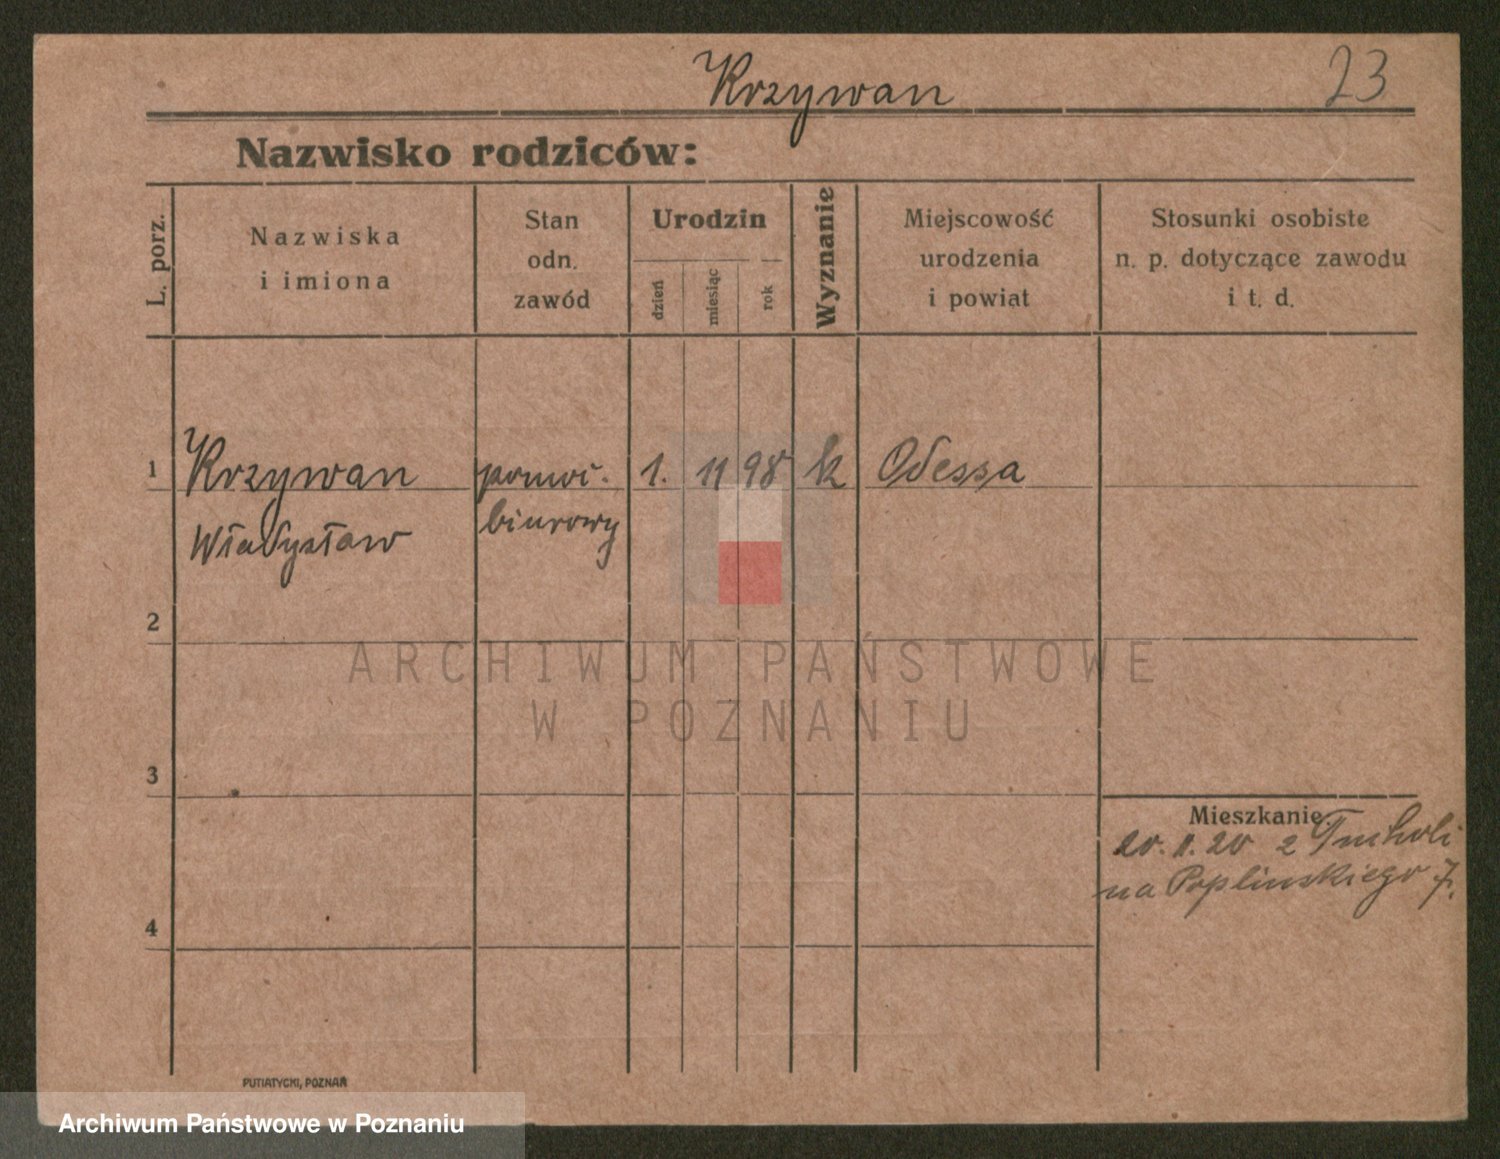 Krzywan 23
Nazwisko rodziców:
L. porz.
Nazwiska
i imiona
Stan
odn.
zawód
Urodzin
dzień
miesiąc
rok
Wyznanie
Miejscowość
urodzenia
i powiat
Stosunki osobiste
n. p. dotyczące zawodu
i t. d.
1 Krzywan pomoc. 1. 11 98 k Odessa
Władysław biurowy
2
ARCHIWUM PAŃSTWOWE
W POZNANIU
3
Mieszkanie.
20. 11. 20 z Tucholi
na Poplinskiego 7.
4
PUTIATYCKI, POZNAŃ
Archiwum Państwowe w Poznaniu